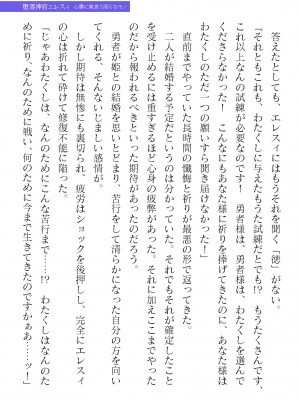 堕落神官エレスィ 心機に巣食う淫らなモノ
答えたとしても、エレスィにはもうそれを聞く〝徳〟がない。
「それともこれも、わたくしに与えたもうた試練だとでも!? もうたくさんです、
これ以上なんの試練が必要なのです！ 勇者様は、勇者様は、わたくしを選んで
くださらなかった！ こんなにもあなた様に祈りを捧げてきたのに、あなた様は
わたくしのただ一つの願いすら聞き届けなかった！」
直前までやっていた長時間の懺悔と祈りが最悪の形で返ってきた。
二人が結婚する予定だというのは分かっていた。それでもそれが確定したこと
を受け止めるには重すぎるほど心身の疲弊があった。それに加えてここまでやっ
たのだから報われるべきといった期待があったのだろう。
勇者が姫との結婚を思いとどまり、苦行をして清らかになった自分の方を向い
てくれる。そんないじましい感情が。
しかし期待は無惨にも裏切られ、疲労はショックを後押しし、完全にエレスィ
の心は折れて砕けて修復不能に陥った。
「じゃあわたくしは、なんのためにこんな苦行まで…!? わたくしはなんのた
めに祈り、なんのために戦い、何のために今まで生きてきたのですかぁあ――ッ！」